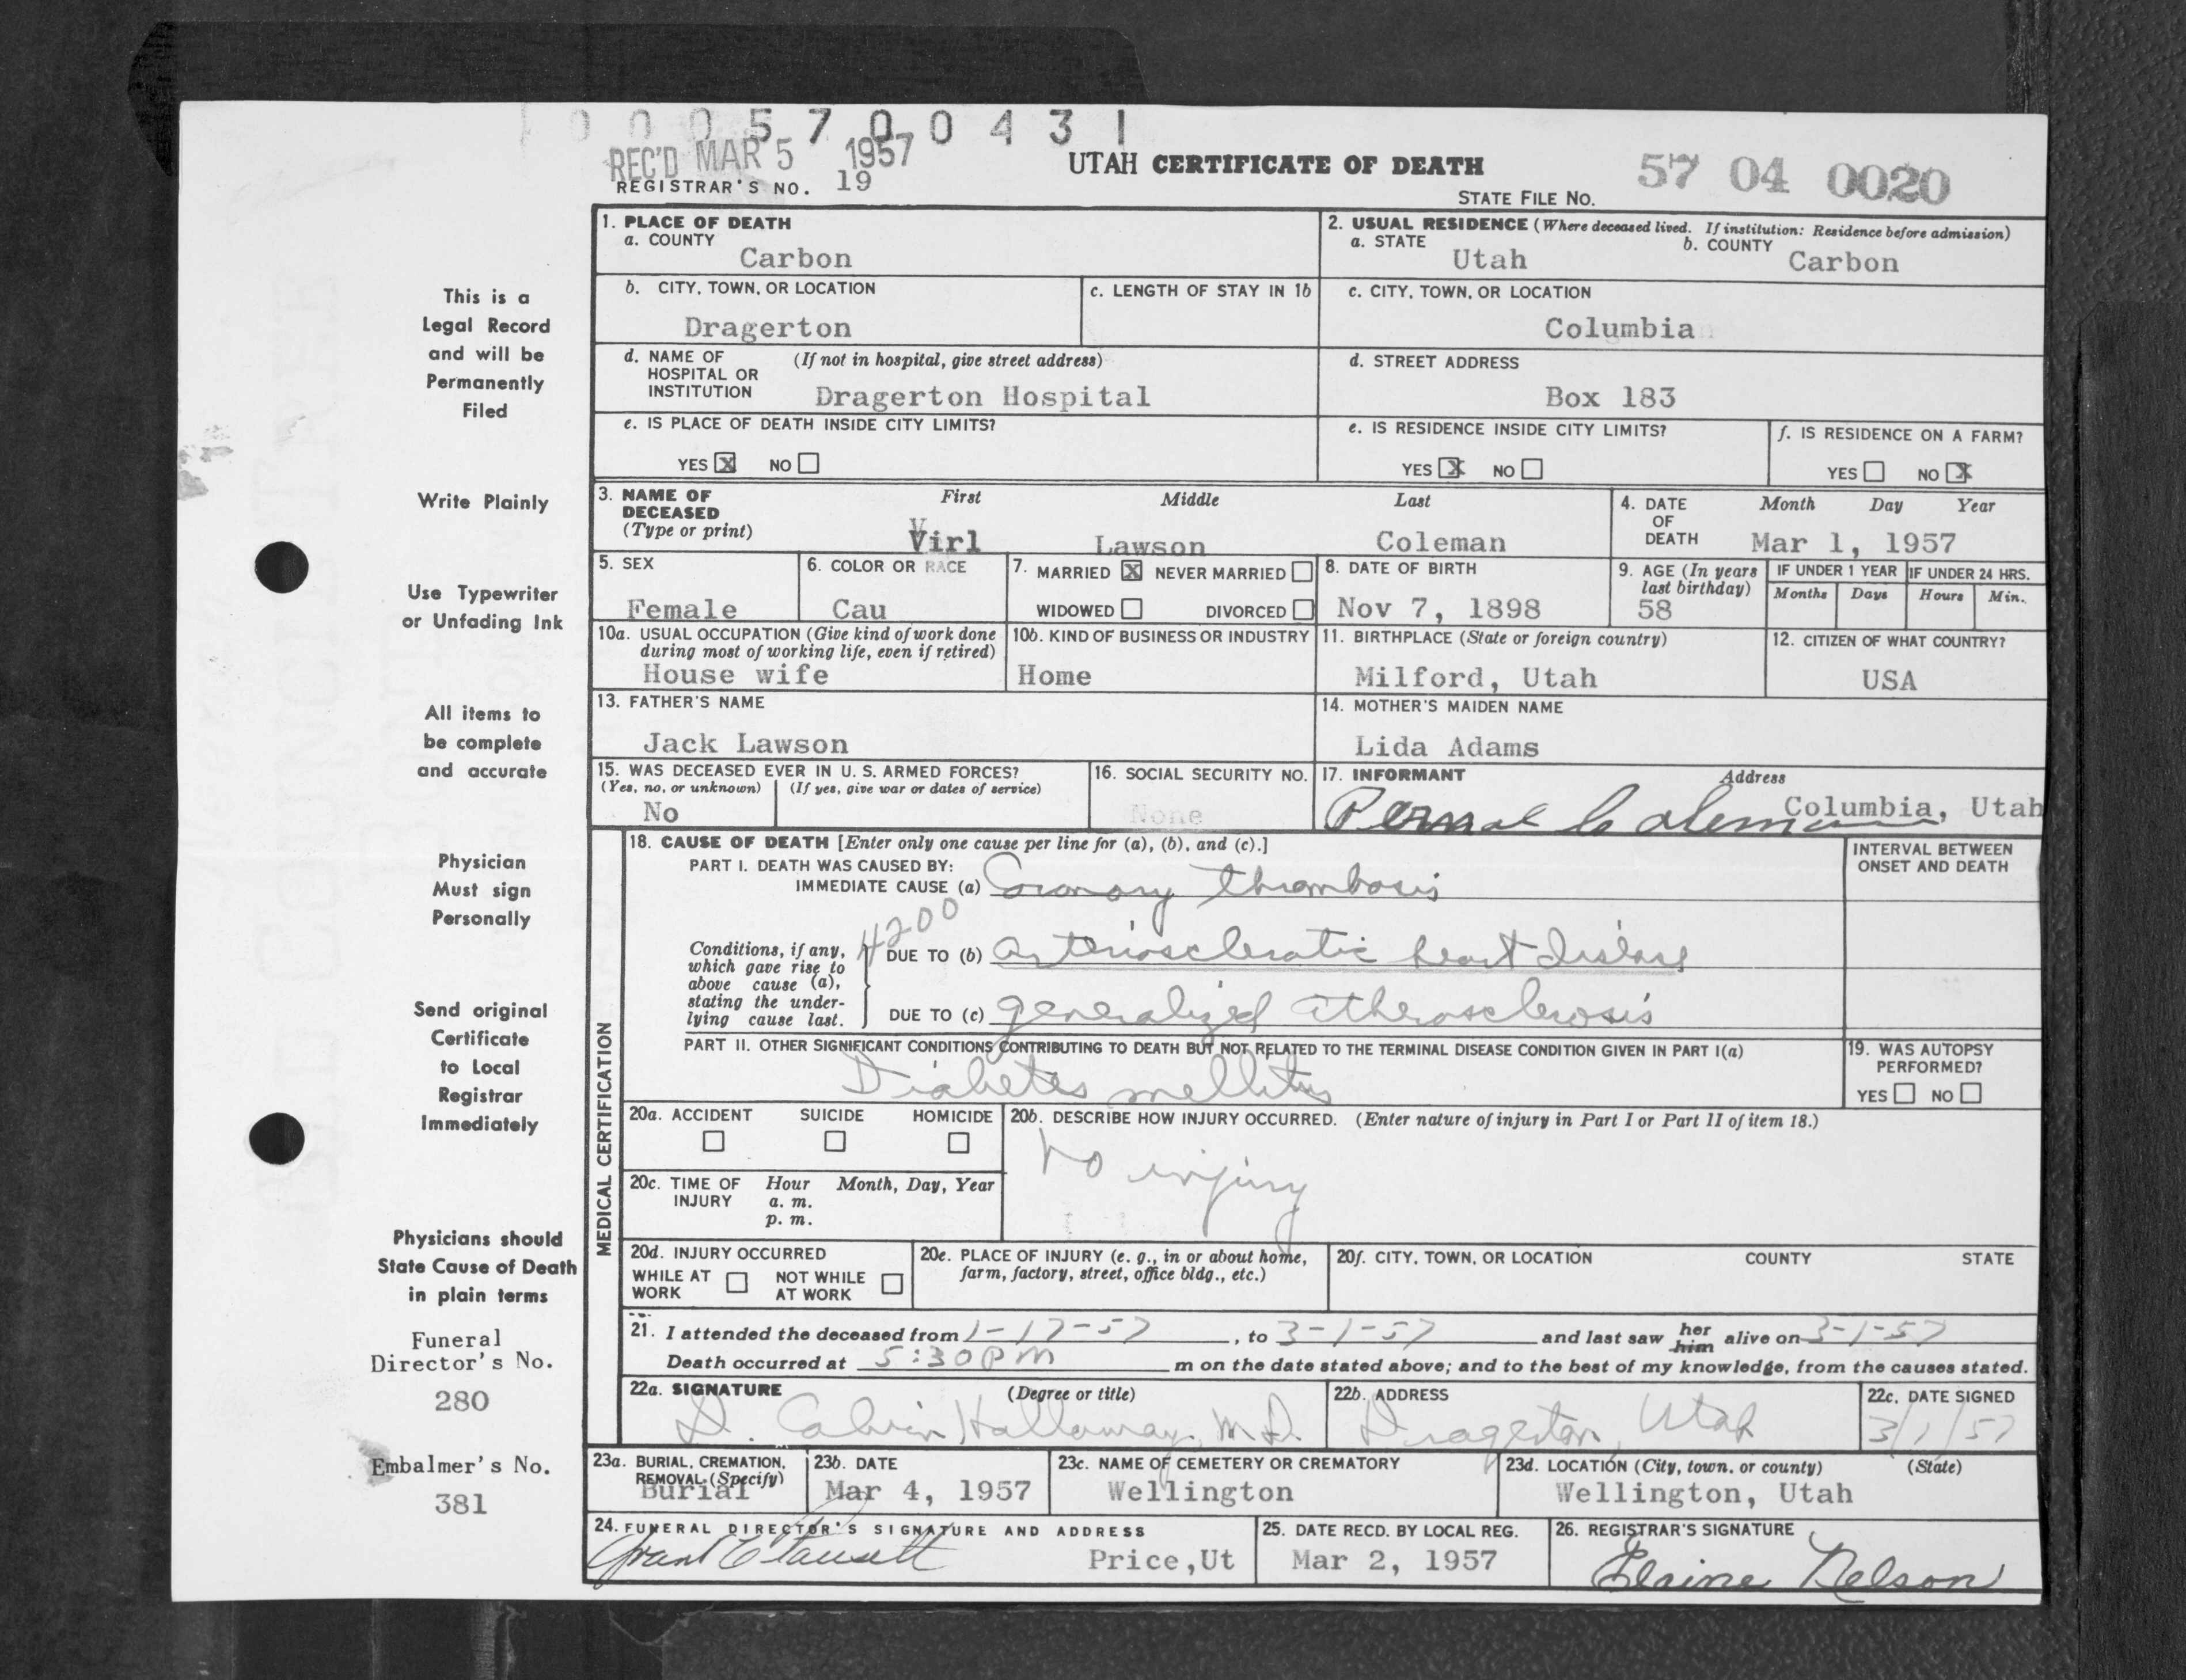 0 0 0 5 7 0 0 4 3 1
REC'D MAR 5 1957
REGISTRAR'S NO. 19
UTAH CERTIFICATE OF DEATH
STATE FILE NO. 57 04 0020
This is a
Legal Record
and will be
Permanently
Filed
Write Plainly
Use Typewriter
or Unfading Ink
All items to
be complete
and accurate
Physician
Must sign
Personally
Send original
Certificate
to Local
Registrar
Immediately
Physicians should
State Cause of Death
in plain terms
Funeral
Director's No.
280
Embalmer's No.
381
1. PLACE OF DEATH
a. COUNTY
Carbon
2. USUAL RESIDENCE (Where deceased lived. If institution: Residence before admission)
a. STATE Utah b. COUNTY Carbon
b. CITY, TOWN, OR LOCATION
Dragerton
c. LENGTH OF STAY IN 1b
c. CITY, TOWN, OR LOCATION
Columbia
d. NAME OF HOSPITAL OR INSTITUTION (If not in hospital, give street address)
Dragerton Hospital
d. STREET ADDRESS
Box 183
e. IS PLACE OF DEATH INSIDE CITY LIMITS?
YES X NO
e. IS RESIDENCE INSIDE CITY LIMITS?
YES X NO
f. IS RESIDENCE ON A FARM?
YES NO X
3. NAME OF DECEASED (Type or print) First Middle Last
Virl Lawson Coleman
4. DATE OF DEATH Month Day Year
Mar 1, 1957
5. SEX
Female
6. COLOR OR RACE
Cau
7. MARRIED X NEVER MARRIED
WIDOWED DIVORCED
8. DATE OF BIRTH
Nov 7, 1898
9. AGE (In years last birthday)
58
IF UNDER 1 YEAR IF UNDER 24 HRS.
Months Days Hours Min.
10a. USUAL OCCUPATION (Give kind of work done during most of working life, even if retired)
House wife
10b. KIND OF BUSINESS OR INDUSTRY
Home
11. BIRTHPLACE (State or foreign country)
Milford, Utah
12. CITIZEN OF WHAT COUNTRY?
USA
13. FATHER'S NAME
Jack Lawson
14. MOTHER'S MAIDEN NAME
Lida Adams
15. WAS DECEASED EVER IN U. S. ARMED FORCES?
(Yes, no, or unknown) (If yes, give war or dates of service)
No
16. SOCIAL SECURITY NO.
None
17. INFORMANT Address
Coleman Columbia, Utah
MEDICAL CERTIFICATION
18. CAUSE OF DEATH [Enter only one cause per line for (a), (b), and (c).]
PART I. DEATH WAS CAUSED BY:
IMMEDIATE CAUSE (a) Coronary thrombosis
INTERVAL BETWEEN ONSET AND DEATH
4200
Conditions, if any, which gave rise to above cause (a), stating the underlying cause last.
DUE TO (b) arteriosclerotic heart disease
DUE TO (c) generalized atherosclerosis
PART II. OTHER SIGNIFICANT CONDITIONS CONTRIBUTING TO DEATH BUT NOT RELATED TO THE TERMINAL DISEASE CONDITION GIVEN IN PART I(a)
Diabetes mellitus
19. WAS AUTOPSY PERFORMED?
YES NO
20a. ACCIDENT SUICIDE HOMICIDE
20b. DESCRIBE HOW INJURY OCCURRED. (Enter nature of injury in Part I or Part II of item 18.)
No injury
20c. TIME OF INJURY Hour Month, Day, Year
a. m.
p. m.
20d. INJURY OCCURRED
WHILE AT WORK NOT WHILE AT WORK
20e. PLACE OF INJURY (e. g., in or about home, farm, factory, street, office bldg., etc.)
20f. CITY, TOWN, OR LOCATION COUNTY STATE
21. I attended the deceased from 1-17-57, to 3-1-57 and last saw her him alive on 3-1-57
Death occurred at 5:30 PM m on the date stated above; and to the best of my knowledge, from the causes stated.
22a. SIGNATURE (Degree or title)
D. Calvin Hallaway, M.D.
22b. ADDRESS
Dragerton, Utah
22c. DATE SIGNED
3/1/57
23a. BURIAL, CREMATION, REMOVAL (Specify)
Burial
23b. DATE
Mar 4, 1957
23c. NAME OF CEMETERY OR CREMATORY
Wellington
23d. LOCATION (City, town, or county) (State)
Wellington, Utah
24. FUNERAL DIRECTOR'S SIGNATURE AND ADDRESS
Grant Price,Ut
25. DATE RECD. BY LOCAL REG.
Mar 2, 1957
26. REGISTRAR'S SIGNATURE
Elaine Nelson